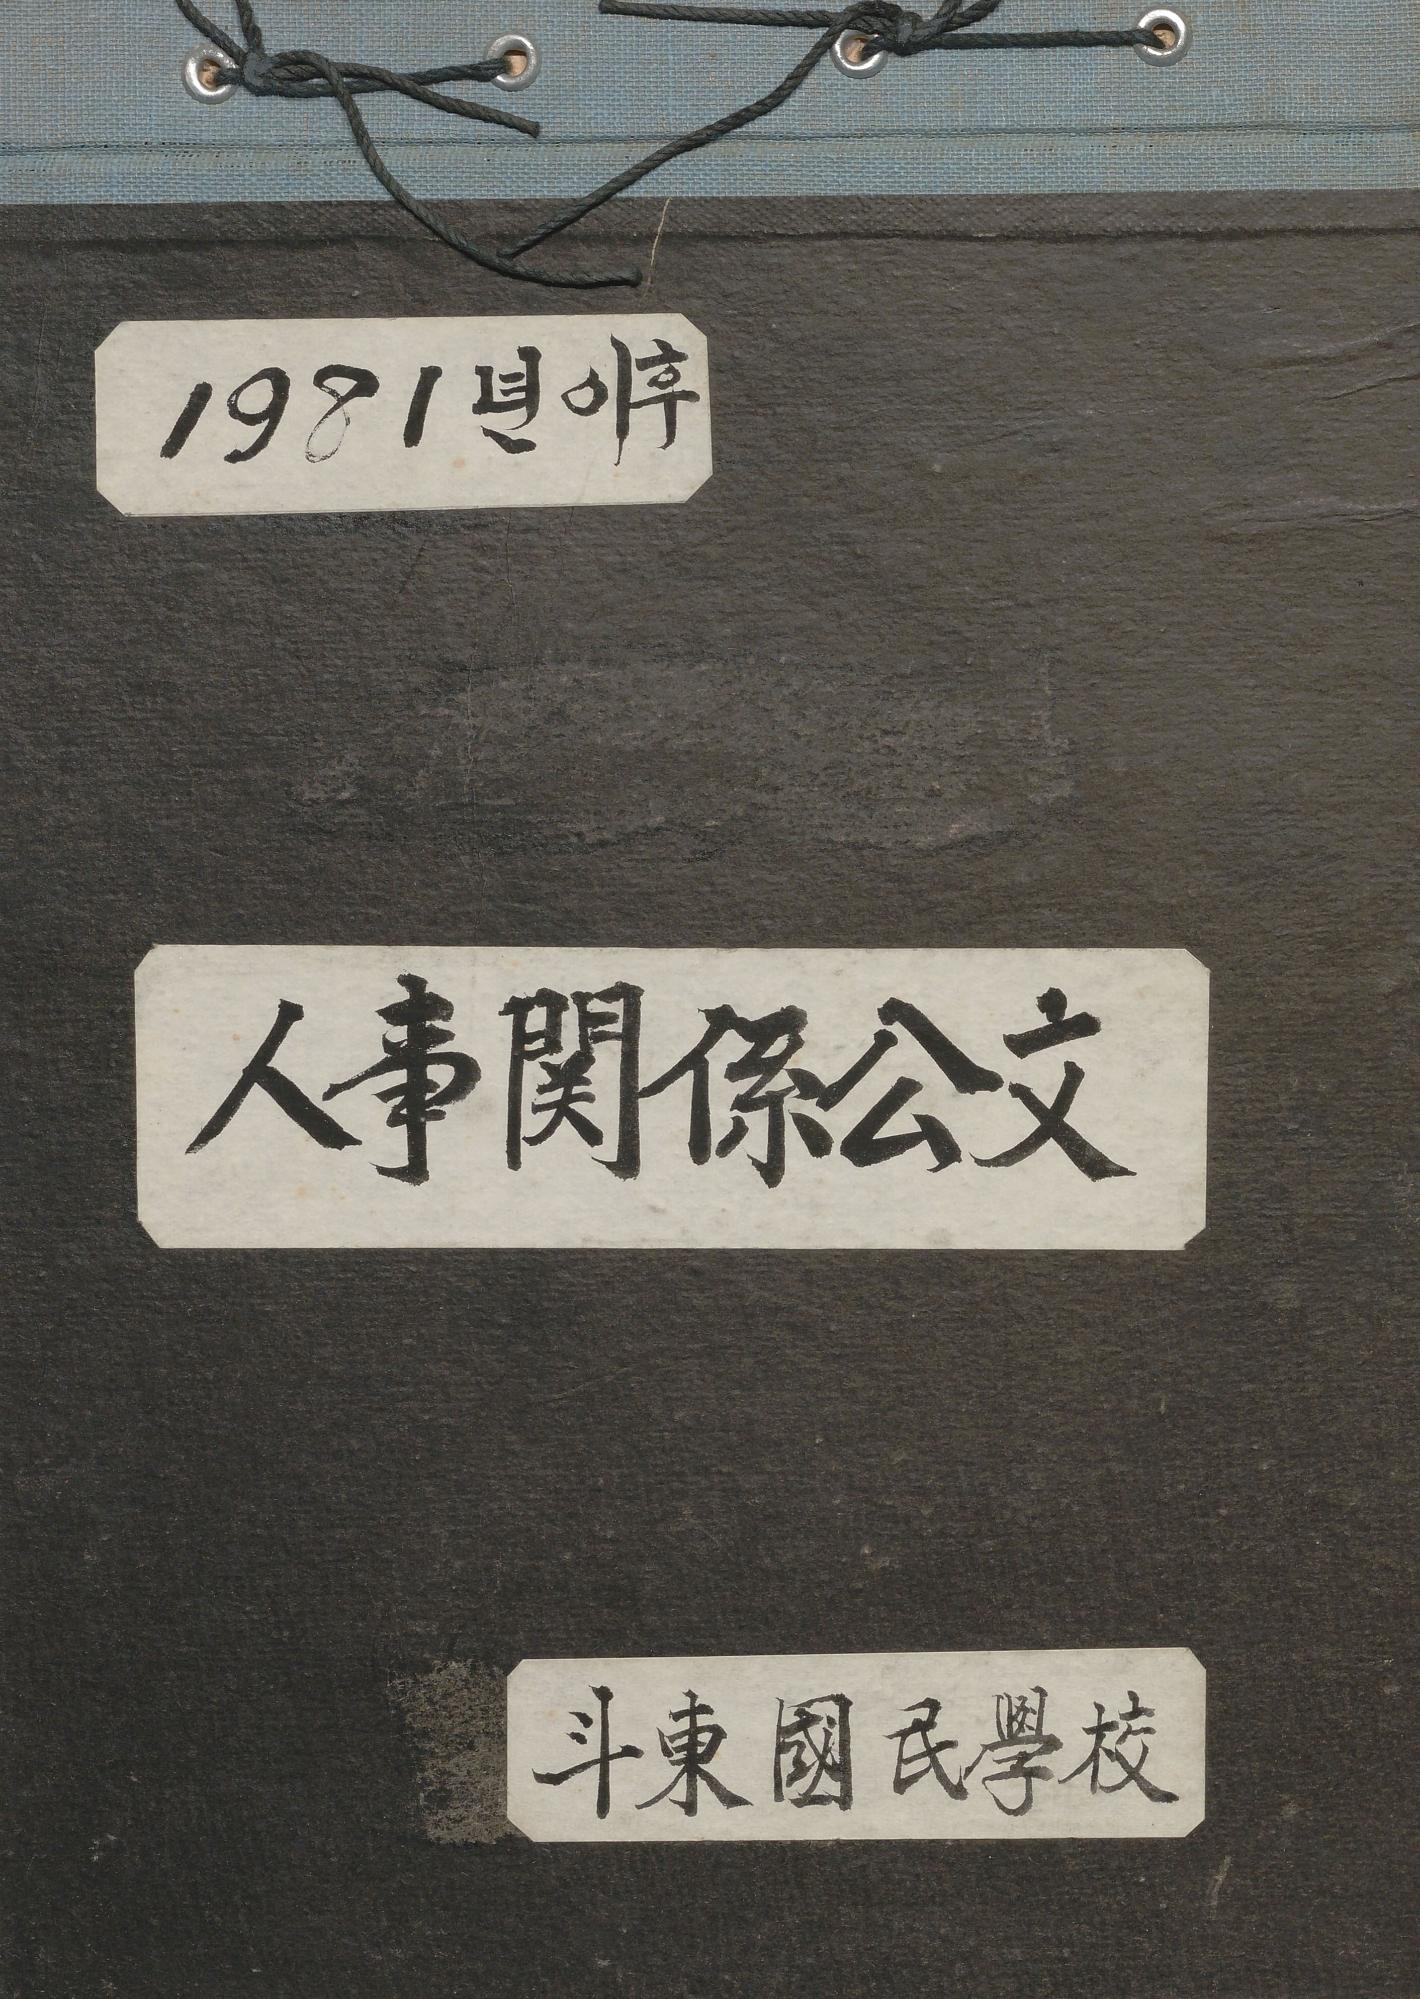 1981년 이후
人事関係公文
斗東國民學校